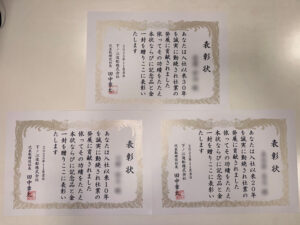 表彰状
あなたは入社以来30年
を誠実に勤続され社業の
発展に貢献されました
依ってその功績をたたえ
本状ならびに記念品と金
一封を贈りここに表彰い
たします
代表取締役社長 田中
表彰状
あなたは入社以来10年
を誠実に勤続され社業の
発展に貢献されました
依ってその功績をたたえ
本状ならびに記念品と金
一封を贈りここに表彰い
たします
代表取締役社長 田中
表彰状
あなたは入社以来20年
を誠実に勤続され社業の
発展に貢献されました
依ってその功績をたたえ
本状ならびに記念品と金
一封を贈りここに表彰い
たします
代表取締役社長 田中